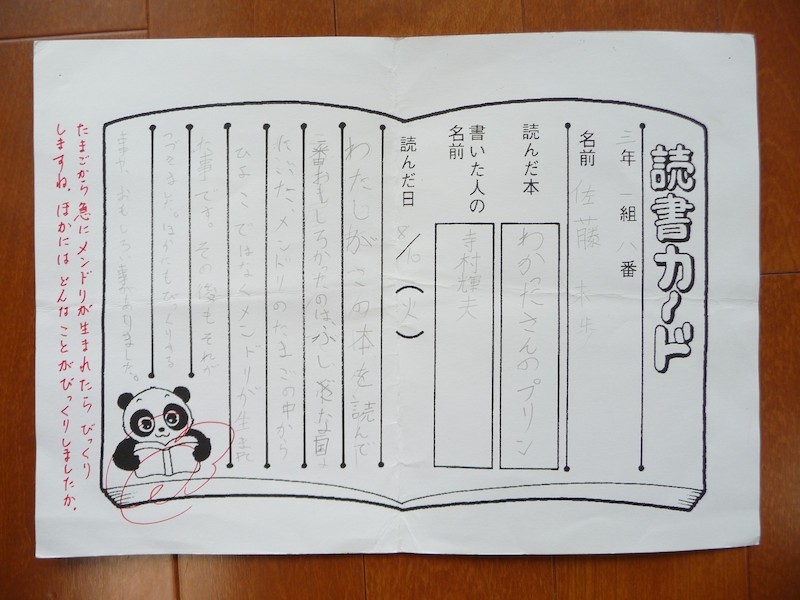 読書カード
三年 一組 八番
名前 佐藤 未歩
読んだ本 わかったさんのプリン
書いた人の名前 寺村輝夫
読んだ日 8/10(火)
わたしがこの本を読んで
一番おもしろかったのは、ふしぎな
メンドリのたまごの中から
ひよこではなくメンドリが生まれ
た事です。その後もそれが
つづきます。ほかにもびっくりする
おもしろい事がありました。
たまごから急にメンドリが生まれたらびっくり
しますね。ほかにはどんなことがびっくりしましたか。